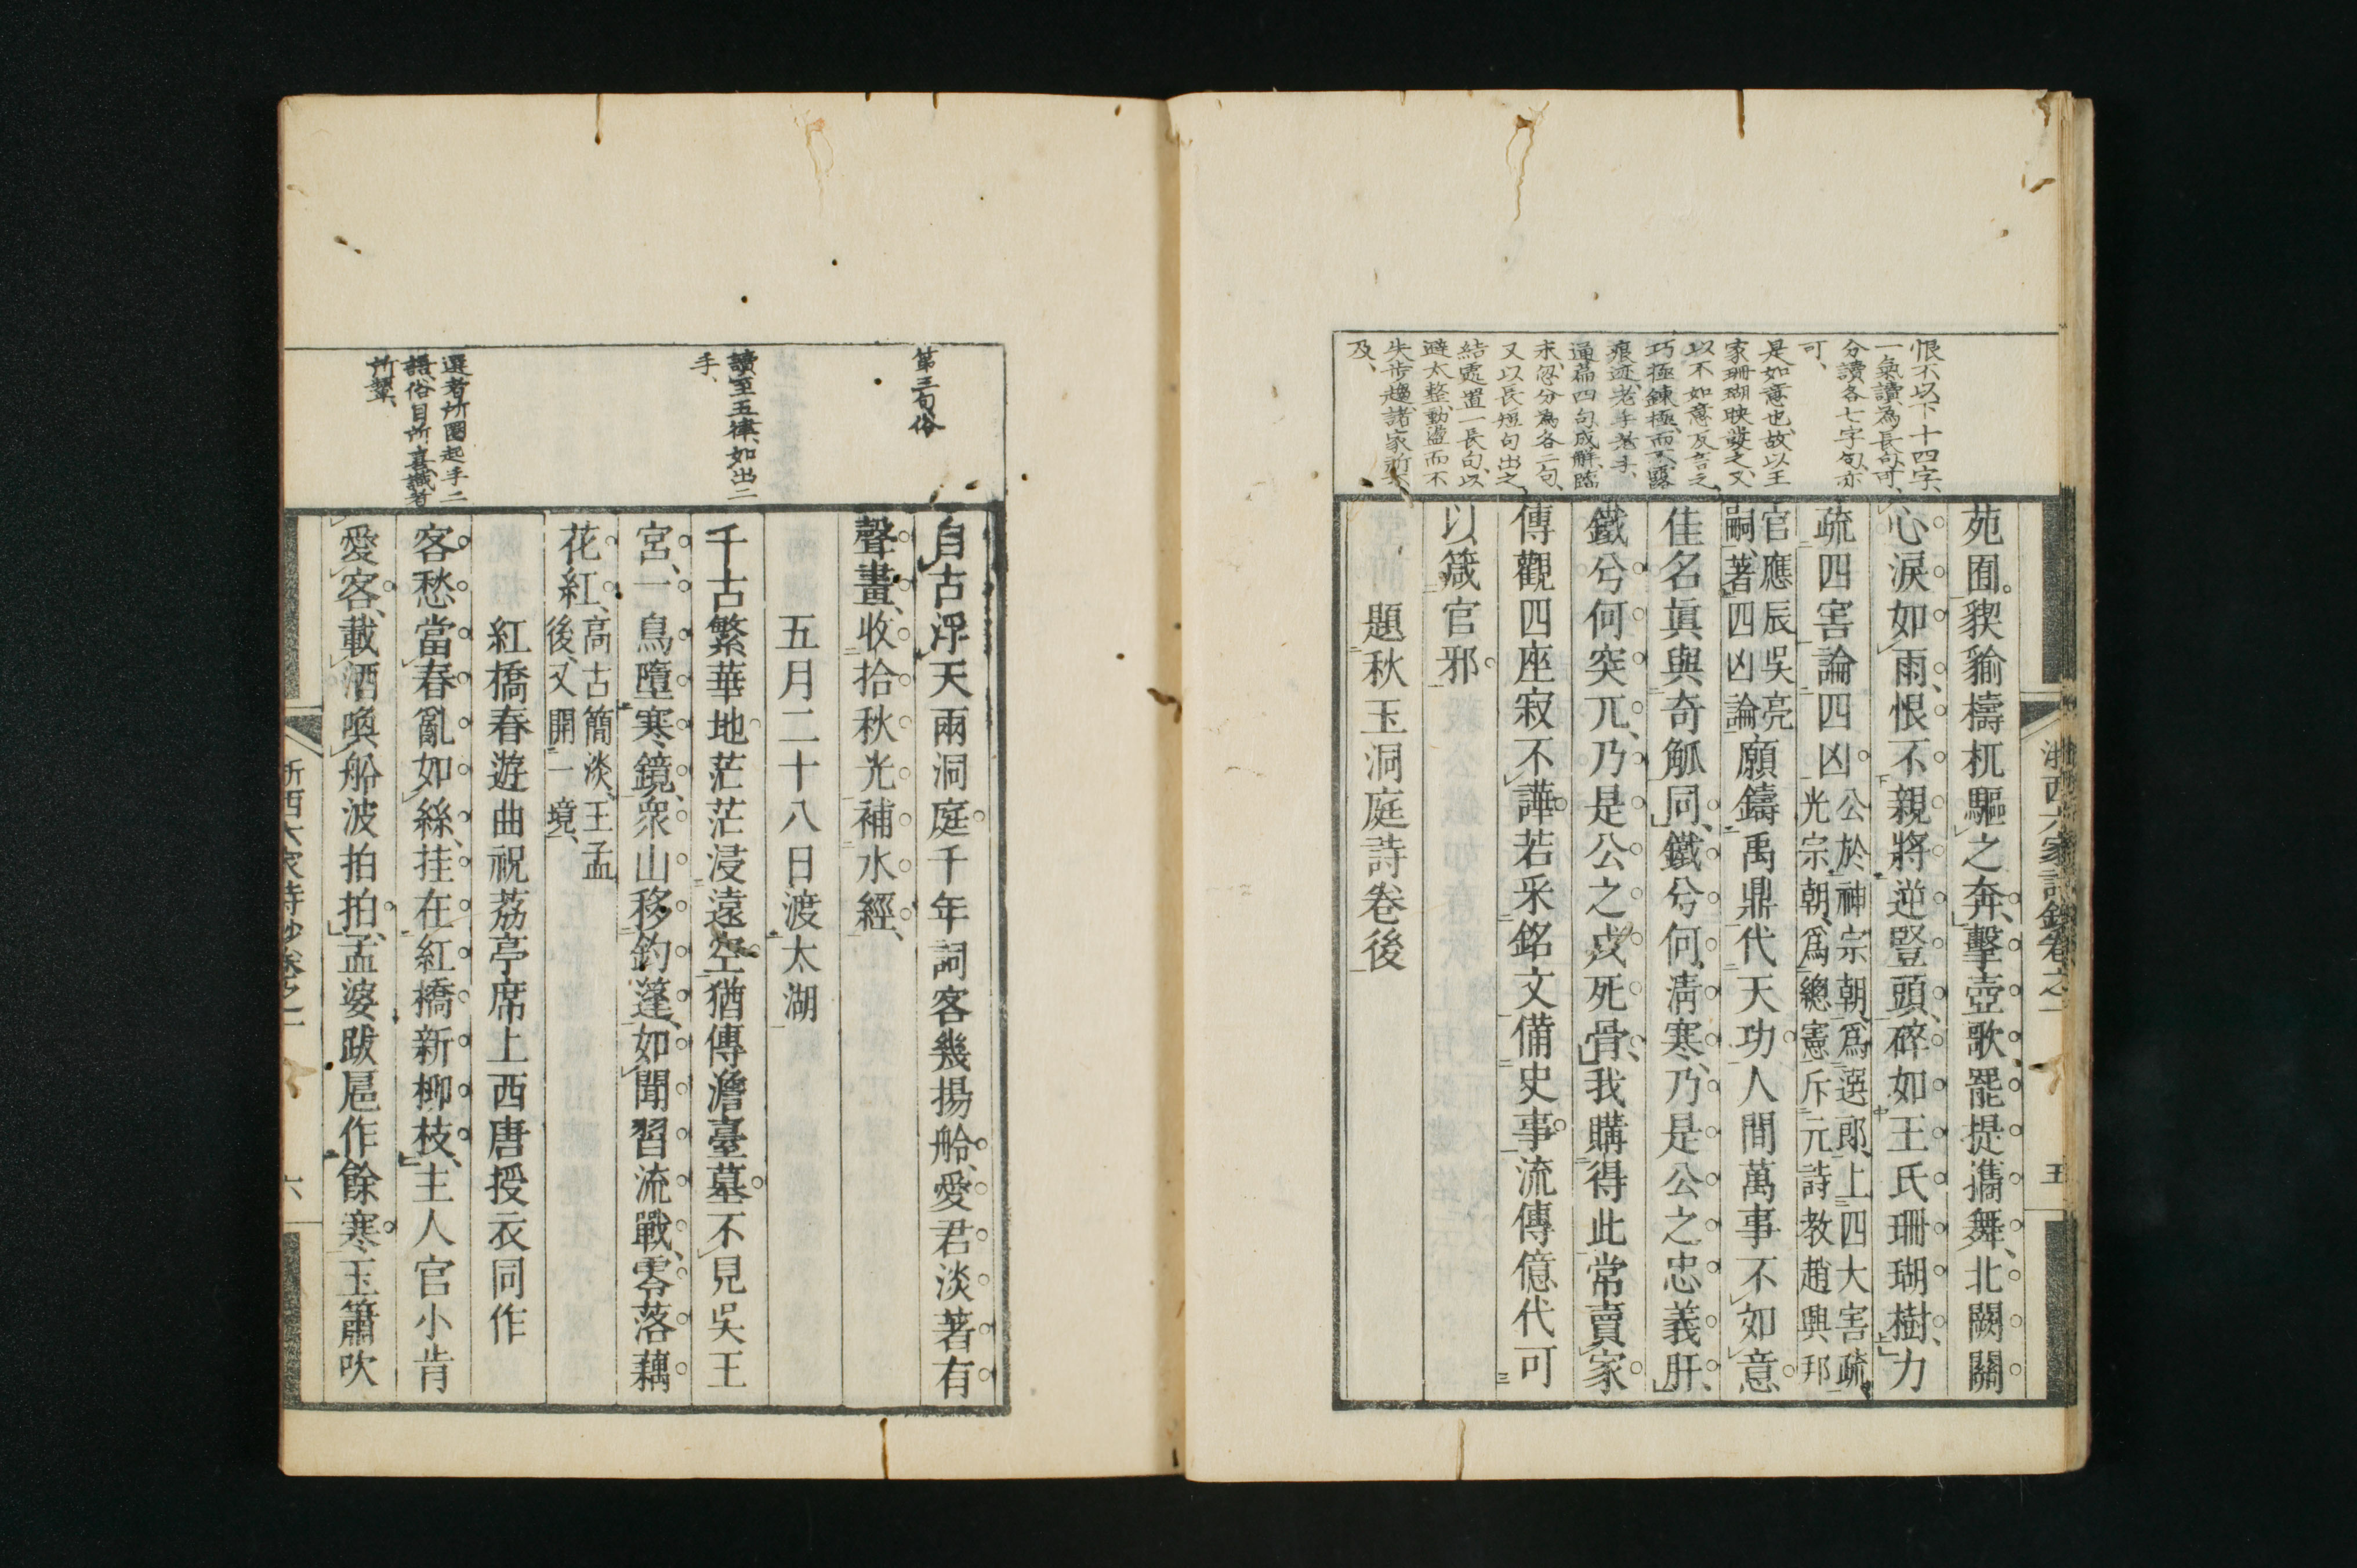 恨不以下十四字、
一氣讀為長句可、
分讀各七字句、亦
可、
是如意也、故以王
家珊瑚映發之、又
以不如意反言之、
巧極錬極、而不露
痕迹、老手老手、
通篇四句成解、臨
末、忽分為各二句、
又以長短句出之、
結處置一長句、以
避太整、動盪而不
失步趨、諸家所不
及、
苑囿。猰貐檮杌驅之奔、擊壺歌、罷提攜舞、北闕關
心淚如雨、恨不親將逆豎頭、碎如王氏珊瑚樹、力
疏四害論四凶
公於神宗朝、爲選郎、上四大害疏、
光宗朝、爲總憲、斥元詩教趙興邦
官應辰吳亮
嗣、著四凶論
願鑄禹鼎代天功人間萬事不如意
佳名眞與奇觚同、鐵兮何淸寒、乃是公之忠義肝、
鐵兮何突兀、乃是公之戍死骨、我購得此常賣家
傳觀四座寂不譁若釆銘文備史事流傳億代可
以箴官邪
題秋玉洞庭詩卷後
浙西六家詩鈔卷之一
五
第三句俗
讀至五律、如出二
手、
選者所圈起手二
語、俗目所喜、識者
所顰、
自古浮天兩洞庭千年詞客幾揚舲、愛君淡著有
聲畫、收拾秋光補水經、
五月二十八日渡太湖
千古繁華地茫茫浸遠空猶傳澹臺墓不見吳王
宮、一鳥墮寒鏡、衆山移釣篷、如聞習流戰、零落藕
花紅、
高古簡淡、王孟
後、又開一境、
紅橋春遊曲祝荔亭席上西唐授衣同作
客愁當春亂如絲、挂在紅橋新柳枝、主人官小肯
愛客、載酒喚船波拍拍、孟婆跋扈作餘寒玉簫吹
浙西六家詩鈔卷之一
六